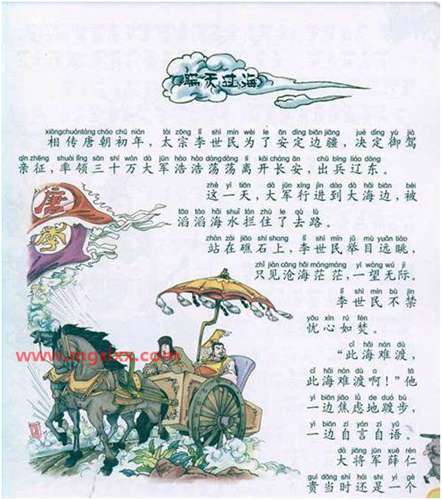 瞒天过海
xiāngchuántáng cháo chū nián tài zōng lǐ shì mín wèi le ān dìng biān jiāng jué dìng yù jià
相传唐朝初年，太宗李世民为了安定边疆，决定御驾
qīn zhēng shuài lǐng sān shí wàn dà jūn hào hào dàng dàng lí kāi cháng ān chū bīng liáo dōng
亲征，率领三十万大军浩浩荡荡离开长安，出兵辽东。
zhè yì tiān dà jūn xíng jìn dào dà hǎi biān bèi
这一天，大军行进到大海边，被
tāo tāo hǎi shuǐ lán zhù le qù lù
滔滔海水拦住了去路。
zhàn zài jiāo shí shang lǐ shì mín jǔ mù yuǎn tiào
站在礁石上，李世民举目远眺，
zhǐ jiàn cāng hǎi mángmáng yí wàng wú jì
只见沧海茫茫，一望无际。
lǐ shì mín bù jīn
李世民不禁
yōu xīn rú fén
忧心如焚。
cǐ hǎi nán dù
“此海难渡，
cǐ hǎi nán dù a tā
此海难渡啊！”他
yì biān jiāo lǜ de duó bù
一边焦虑地踱步，
yì biān zì yán zì yǔ
一边自言自语。
dà jiāng jūn xuē rén
大将军薛仁
guì dāng shí hái shì yí gè
贵当时还是一个
唐
李
www.mgsxx.com